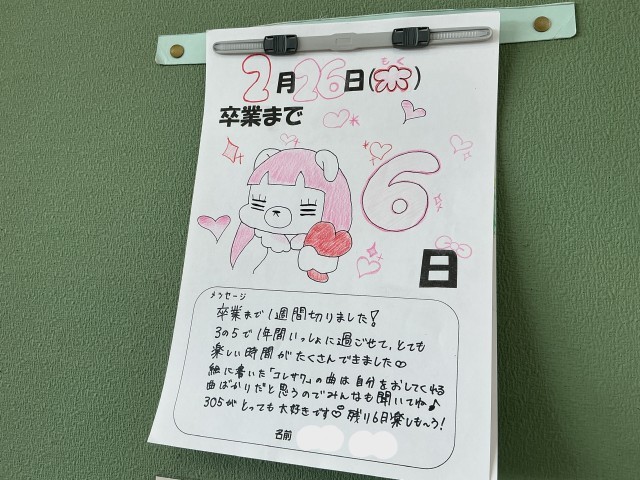 2月26日(木)
もく
卒業まで
6
日
メッセージ
卒業まで1週間切りました!
3の5で1年間いっしょに過ごせて、とても
楽しい時間がたくさんできました
絵に書いた「コレサワ」の曲は自分をおしてくれる
曲ばかりだと思うのでみんなも聞いてね♪
305がとっても大好きです 残り6日楽しも〜う!
名前